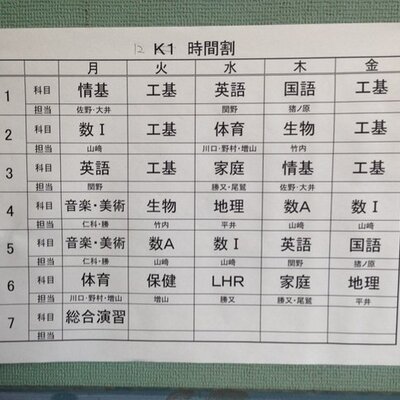 12 K1 時間割
月 火 水 木 金
1 科目 情基 工基 英語 国語 工基
担当 佐野・大井 関野 猪ノ原
2 科目 数Ⅰ 工基 体育 生物 工基
担当 山崎 川口・野村・増山 竹内
3 科目 英語 工基 家庭 情基 工基
担当 関野 勝又・尾鷲 佐野・大井
4 科目 音楽・美術 生物 地理 数A 数Ⅰ
担当 仁科・勝 竹内 平井 山崎 山崎
5 科目 音楽・美術 数A 数Ⅰ 英語 国語
担当 仁科・勝 山崎 山崎 関野 猪ノ原
6 科目 体育 保健 LHR 家庭 地理
担当 川口・野村・増山 増山 勝又 勝又・尾鷲 平井
7 科目 総合演習
担当